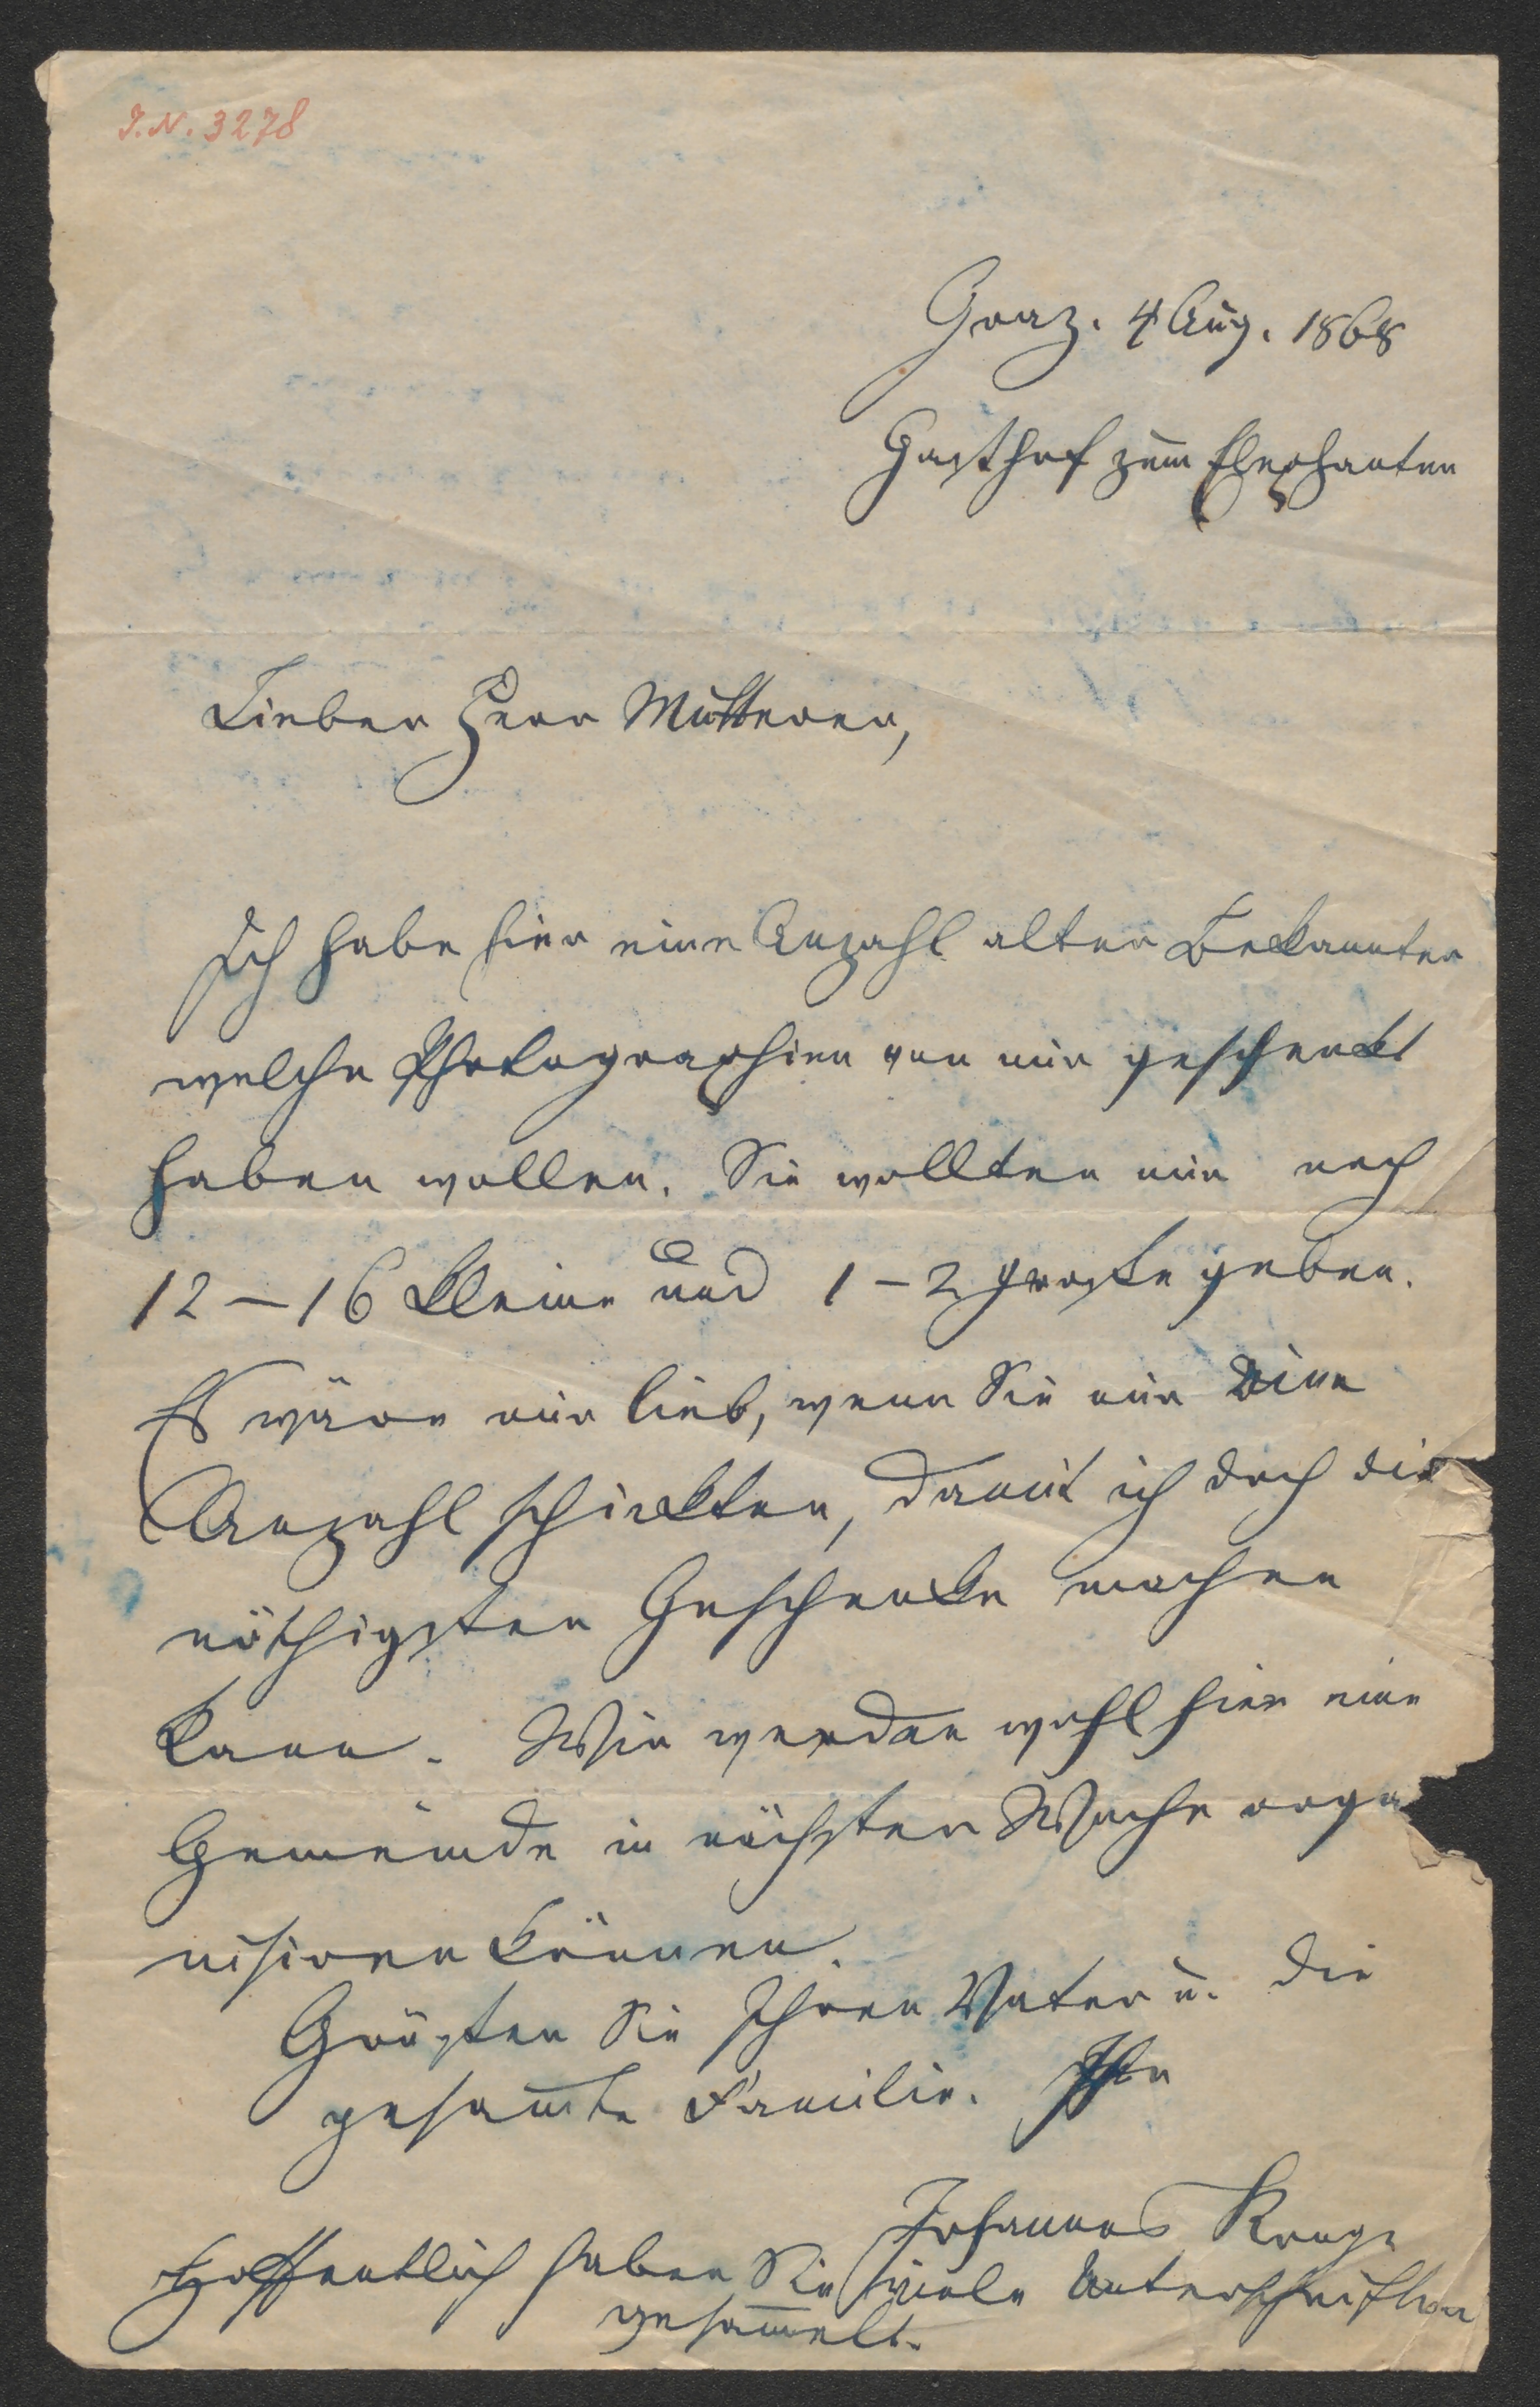 J.N. 3278
Graz. 4 Aug. 1868
Gasthof zum Elephanten
Lieber Herr Mutterer,
Ich habe hier eine Anzahl alter Bekannter
welche Photographien von mir geschenkt
haben wollen. Sie wollten mir noch
12 – 16 kleine und 1 – 2 große geben.
Es wäre mir lieb, wenn Sie mir eine
Anzahl schickten, damit ich doch die
nöthigsten Geschenke machen
kann. Wir werden wohl hier eine
Gemeinde in nächster Woche orga
nisiren können.
Grüßen Sie Ihren Vater u. die
gesam̅te Familie. Ihr
Johannes Ronge
Hoffentlich haben Sie viele Unterschriften
gesam̅elt.